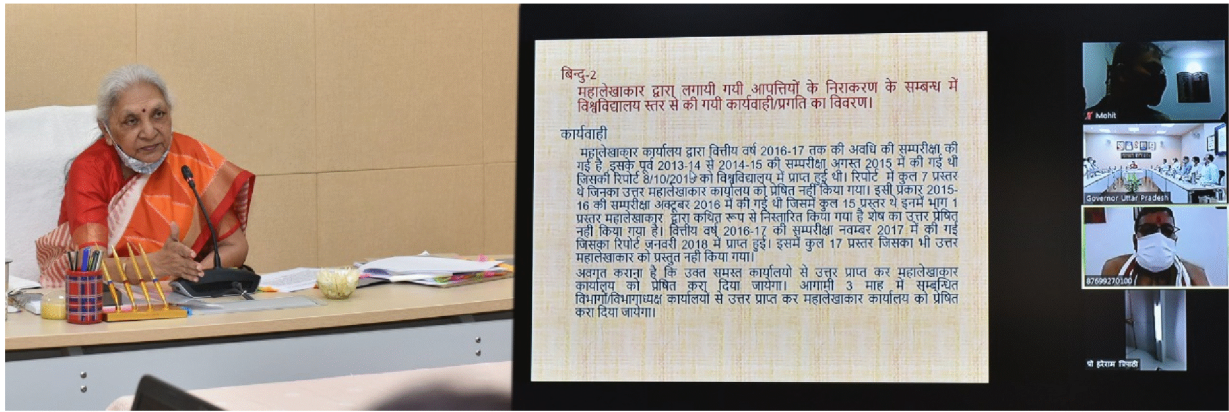 बिन्दु-2
महालेखाकार द्वारा लगायी गयी आपत्तियों के निराकरण के सम्बन्ध में
विश्वविद्यालय स्तर से की गयी कार्यवाही/प्रगति का विवरण।
कार्यवाही
महालेखाकार कार्यालय द्वारा वित्तीय वर्ष 2016-17 तक की अवधि की सम्परीक्षा की
गई है इसके पूर्व 2013-14 से 2014-15 की सम्परीक्षा अगस्त 2015 में की गई थी
जिसकी रिपोर्ट 8/10/2015 को विश्वविद्यालय में प्राप्त हुई थी। रिपोर्ट में कुल 7 प्रस्तर
थे जिनका उत्तर महालेखाकार कार्यालय को प्रेषित नहीं किया गया। इसी प्रकार 2015-
16 की सम्परीक्षा अक्टूबर 2016 में की गई थी जिसमें कुल 15 प्रस्तर थे इनमें भाग 1
प्रस्तर महालेखाकार द्वारा कथित रूप से निस्तारित किया गया है शेष का उत्तर प्रेषित
नही किया गया है। वित्तीय वर्ष 2016-17 की सम्परीक्षा नवम्बर 2017 में की गई
जिसका रिपोर्ट जनवरी 2018 में प्राप्त हुई। इसमें कुल 17 प्रस्तर जिसका भी उत्तर
महालेखाकार को प्रस्तुत नही किया गया।
अवगत कराना है कि उक्त समस्त कार्यालयो से उत्तर प्राप्त कर महालेखाकार
कार्यालय को प्रेषित करा दिया जायेगा। आगामी 3 माह में सम्बन्धित
विभागों/विभागाध्यक्ष कार्यालयों से उत्तर प्राप्त कर महालेखाकार कार्यालय को प्रेषित
करा दिया जायेगा।
Mohit
Governor Uttar Pradesh
87699270100
प्रो हरेराम त्रिपाठी